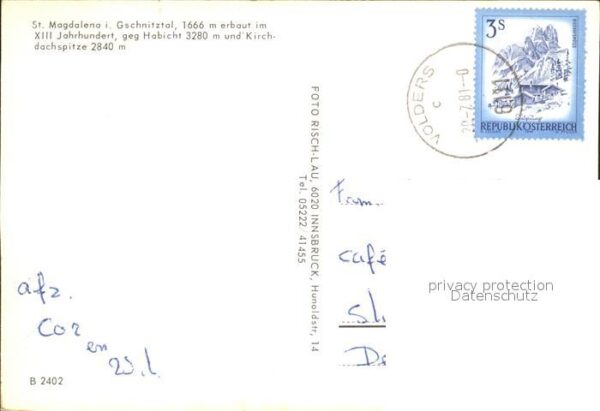 St. Magdalena i. Gschnitztal, 1666 m erbaut im
XIII Jahrhundert, geg Habicht 3280 m und Kirch-
dachspitze 2840 m
3 S
REPUBLIK ÖSTERREICH
VOLDERS
c
FOTO RISCH-LAU, 6020 INNSBRUCK, Hunoldstr. 14
Tel. 05222 41455
Fam.
café
privacy protection
Datenschutz
afz.
Cor
en
B 2402